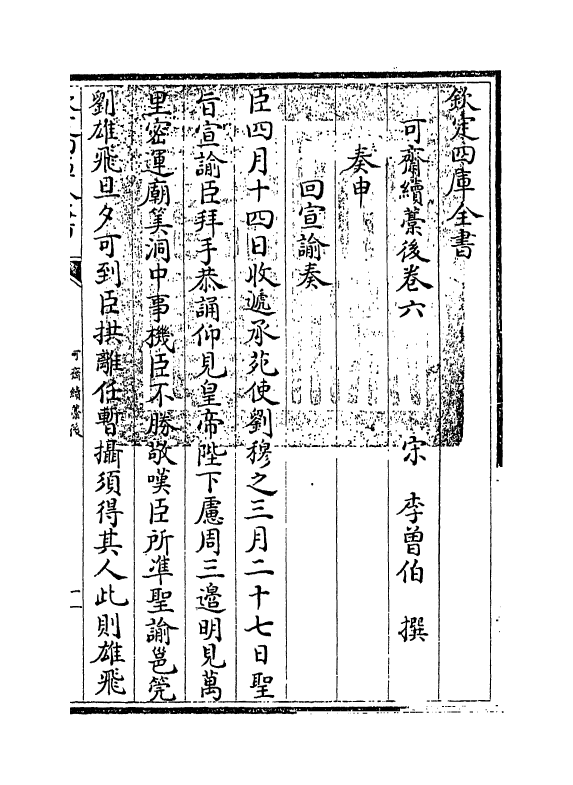 欽定四庫全書
可齋續藁後卷六　宋　李曾伯　撰
奏申
回宣諭奏
臣四月十四日收遞承苑使劉穆之三月二十七日聖
旨宣諭臣拜手恭誦仰見皇帝陛下慮周三邊明見萬
里密運廟筭洞中事機臣不勝敬嘆臣所準聖諭邕筦
劉雄飛旦夕可到臣拱離任暫攝須得其人此則雄飛
可齋續藁後
一